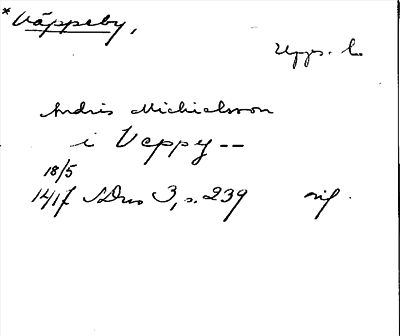 * Väppeby,
Upps. l.
Andris Michielsson
i Veppy--
18/5
1417 SDns 3, s. 239 orig.